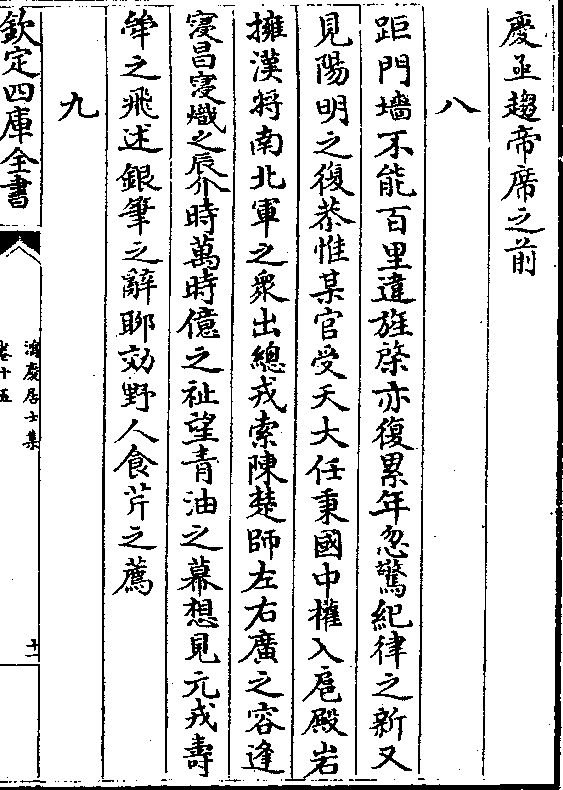 慶亟趨帝席之前
八
距門墻不能百里違旌棨亦復累年忽驚紀律之新又
見陽明之復恭惟某官受天大任秉國中權入扈殿岩
擁漢將南北軍之衆出總戎索陳楚師左右廣之容逢
寖昌寖熾之辰介時萬時億之祉望青油之幕想見元戎壽
斚之飛述銀筆之辭聊効野人食芹之薦
九
欽定四庫全書
鴻慶居士集
卷十五
十一